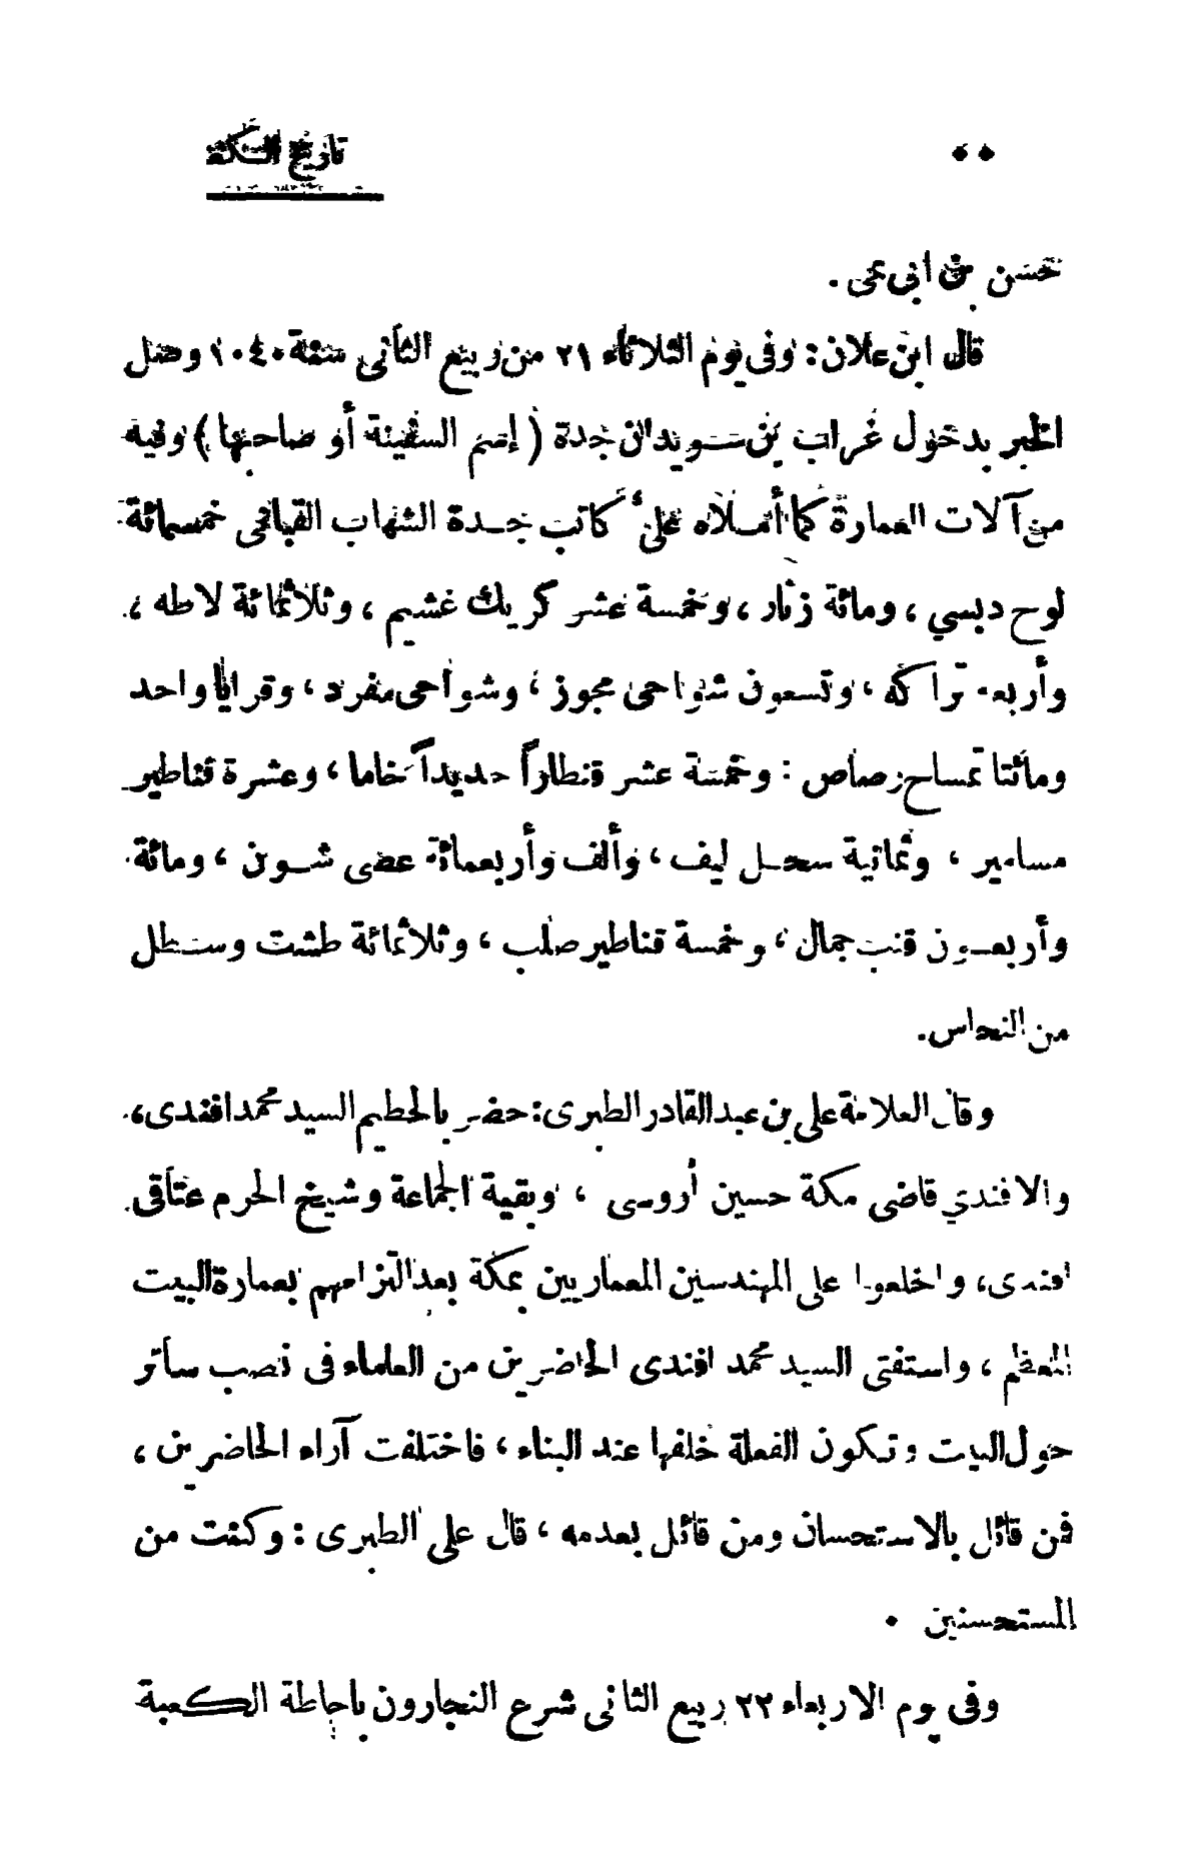 تاريخ الكعبة
حسن بن ابى نمى .
قال ابن علان : وفى يوم الثلاثاء ٢١ من ربيع الثانى سنة ١٠٤٠ وصل
الخبر بدخول غراب بن سويدان جدة ( إسم السفينة أو صاحبها ) وفيه
من آلات العمارة كما أملاه على كاتب جدة الشهاب القباني خمسمائة
لوح دبسي ، ومائة زنار ، وخمسة عشر كريك غشيم ، وثلاثمائة لاطه ،
وأربعة تراكه ، وتسعون شواحى مجوز ، وشواحى مفرد ، وقرايا واحد
ومائتا تمساح رصاص : وخمسة عشر قنطاراً حديداً خاما ، وعشرة قناطير
مسامير ، وثمانية سحل ليف ، وألف وأربعمائة عصى شون ، ومائة
وأربعون قنب جمال ، وخمسة قناطير صلب ، وثلاثمائة طشت وسطل
من النحاس .
وقال العلامة على بن عبد القادر الطبرى : حضر بالحطيم السيد محمد افندى ،
والافندي قاضى مكة حسين أروسى ، وبقية الجماعة وشيخ الحرم عتاقى
افندى ، واخلعوا على المهندسين المعماريين بمكة بعد التزامهم بعمارة البيت
المعظم ، واستفتى السيد محمد افندى الحاضرين من العلماء فى نصب ساتر
حول البيت وتكون الفعلة خلفها عند البناء ، فاختلفت آراء الحاضرين ،
فمن قائل بالاستحسان ومن قائل بعدمه ، قال على الطبرى : وكنت من
المستحسنين .
وفى يوم الاربعاء ٢٢ ربيع الثانى شرع النجارون باحاطة الكعبة